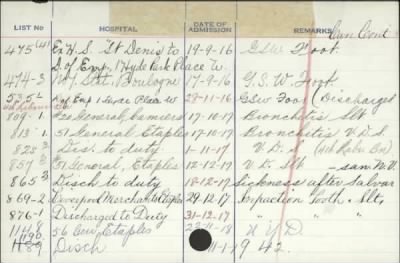 LIST No HOSPITAL DATE OF ADMISSION REMARKS
475 Ex H.S. St Denis to 19-9-16 GSW Foot.
D of Emp, 1 Hyde Park Place W
474-3 Stat. Boulogne 17-9-16 G.S.W Foot
D of Emp 28-11-16 GSW Foot (Discharged
809-1 20 General Camiers 17-10-17 Bronchitis Slt
813-1 51 General Etaples 17-10-17 Bronchitis V.D.S
828 Dis. to duty 1-11-17 V.D.S
857 51 General, Etaples 12-12-17 V.D. Slt
865-3 Disch to duty 18-12-17 Sickness after Salvar
869-2 Merchants Etaples 29-12-17 Impaction Tooth. Slt.
876-1 Discharged to Duty 31-12-17 " " "
1148 56 Etaples 23-11-18 N.Y.D
1190
1189 Disch 11-1-19 42.